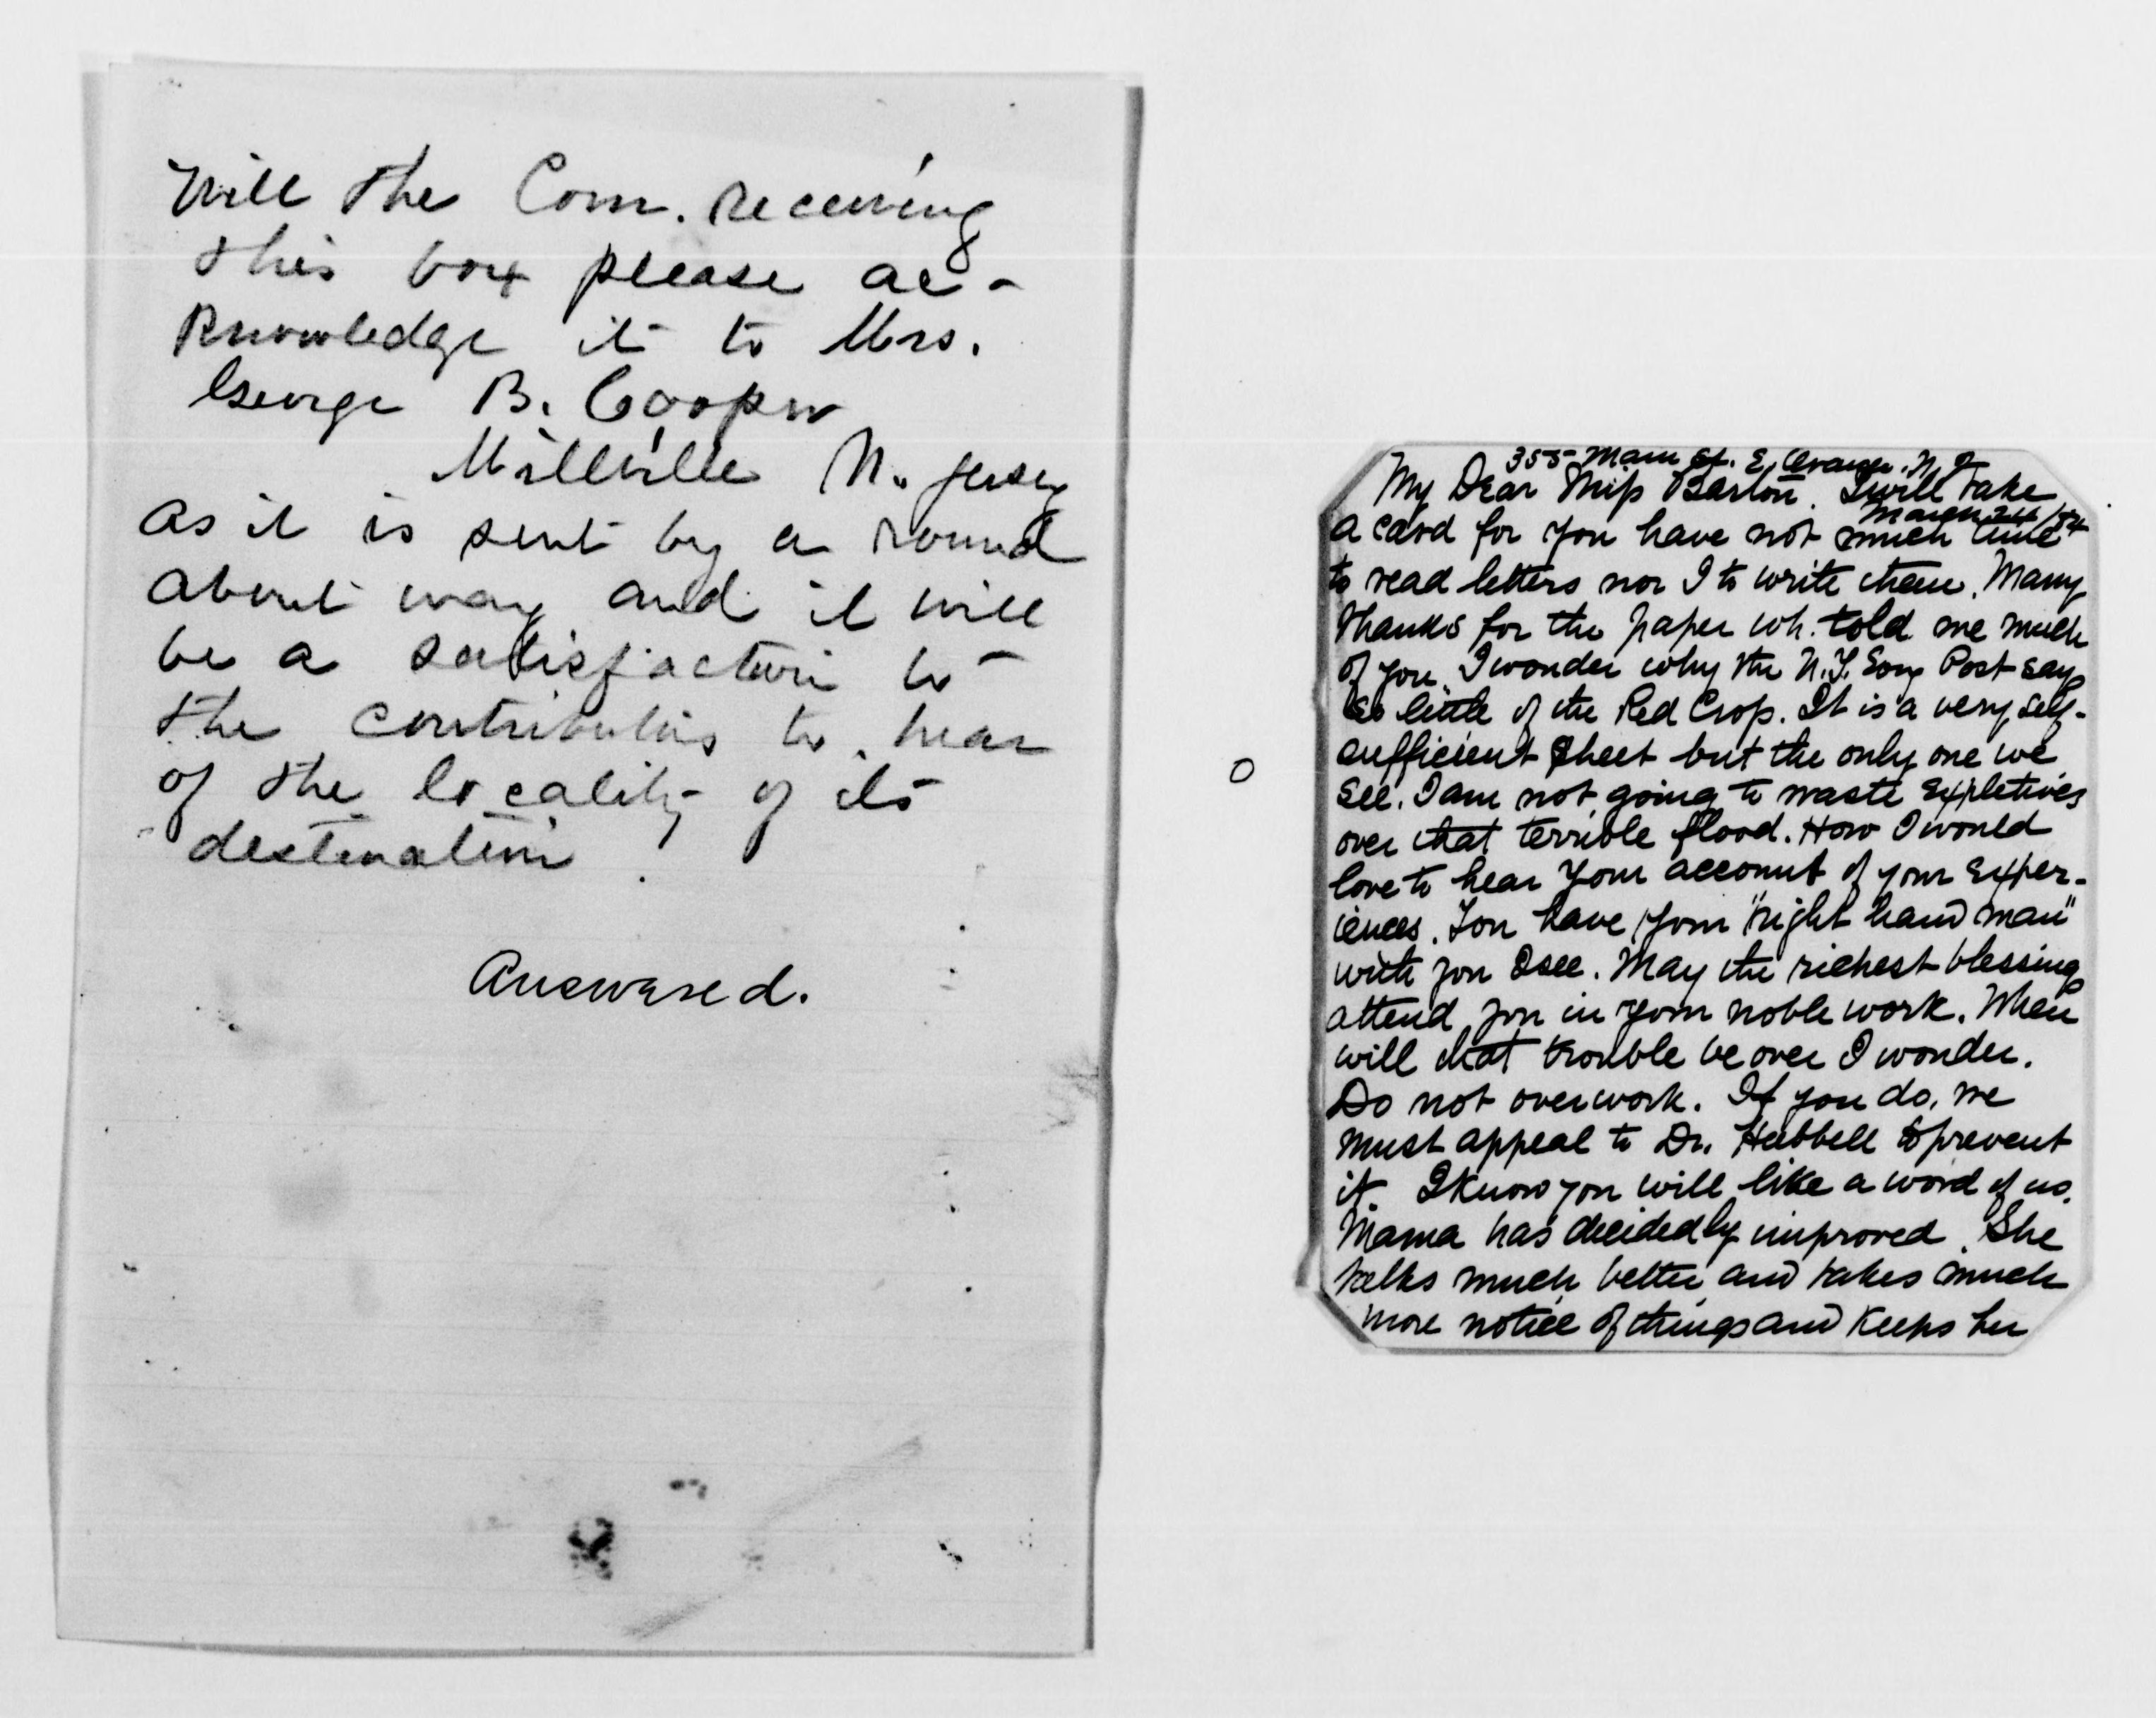 Will the Com. receiving
this box please ac-
knowledge it to Mrs.
George B. Cooper
Millville N. Jersey
as it is sent by a round
about way and it will
be a satisfaction to
the contributors to hear
of the locality of its
destination.
Answered.
355 Main St. E. Orange. N. J.
My Dear Miss Barton. I will take
March 24/84
a card for you have not much time
to read letters nor I to write them. Many
thanks for the paper wh. told me much
of you. I wonder why the N.Y. Eve Post says
so little of the Red Cross. It is a very self-
sufficient sheet but the only one we
see. I am not going to waste expletives
over that terrible flood. How I would
love to hear your account of your exper-
iences. You have your "right hand man"
with you I see. May the richest blessings
attend you in your noble work. When
will that trouble be over I wonder.
Do not overwork. If you do, we
must appeal to Dr. Hubbell to prevent
it. I know you will like a word of us.
Mama has decidedly improved. She
talks much better and takes much
more notice of things and keeps her